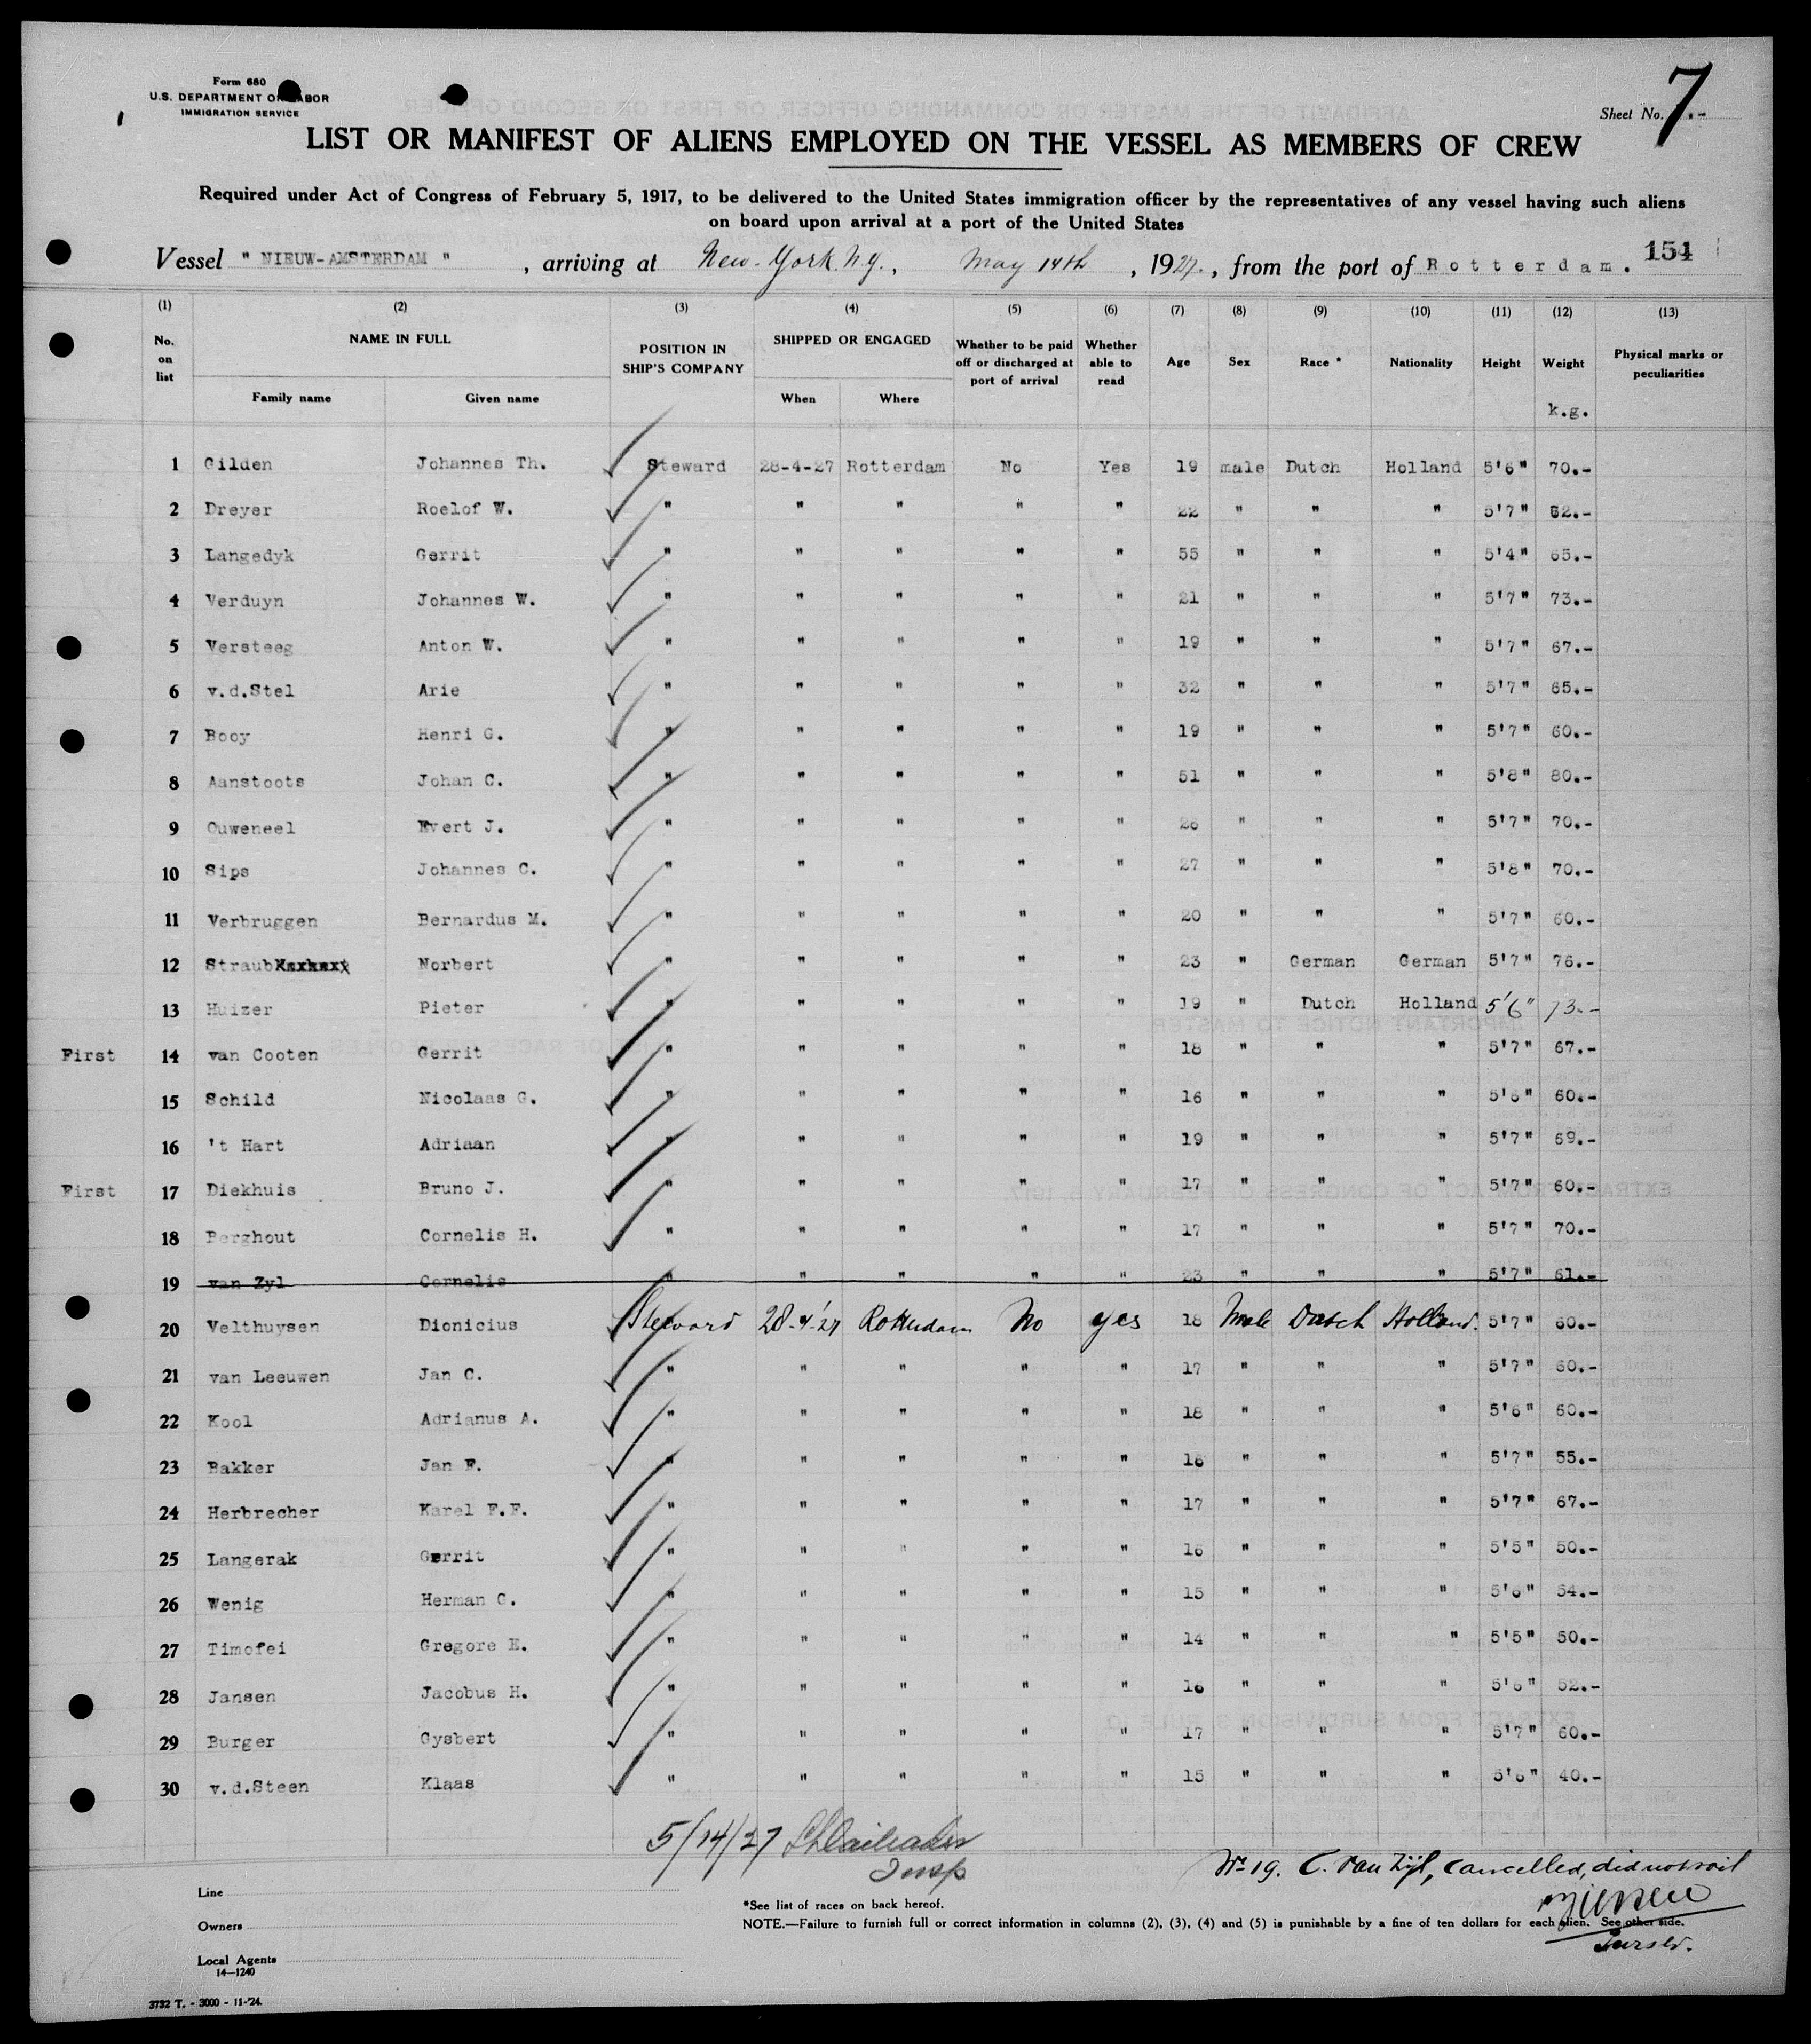 Form 680
U.S. DEPARTMENT OF LABOR
IMMIGRATION SERVICE
Sheet No. 7
LIST OR MANIFEST OF ALIENS EMPLOYED ON THE VESSEL AS MEMBERS OF CREW
Required under Act of Congress of February 5, 1917, to be delivered to the United States immigration officer by the representatives of any vessel having such aliens
on board upon arrival at a port of the United States
Vessel " NIEUW-AMSTERDAM " , arriving at New-York. N.Y. , May 14th , 1927. , from the port of Rotterdam. 154
(1) (2) (3) (4) (5) (6) (7) (8) (9) (10) (11) (12) (13)
No. on list NAME IN FULL Family name Given name POSITION IN SHIP'S COMPANY SHIPPED OR ENGAGED When Where Whether to be paid off or discharged at port of arrival Whether able to read Age Sex Race * Nationality Height Weight Physical marks or peculiarities
k.g.
1 Gilden Johannes Th. Steward 28-4-27 Rotterdam No Yes 19 male Dutch Holland 5'6" 70.-
2 Dreyer Roelof W. " " " " " 22 " " " 5'7" 62.-
3 Langedyk Gerrit " " " " " 55 " " " 5'4" 65.-
4 Verduyn Johannes W. " " " " " 21 " " " 5'7" 73.-
5 Versteeg Anton W. " " " " " 19 " " " 5'7" 67.-
6 v.d.Stel Arie " " " " " 32 " " " 5'7" 65.-
7 Booy Henri G. " " " " " 19 " " " 5'7" 60.-
8 Aanstoots Johan C. " " " " " 51 " " " 5'8" 80.-
9 Ouweneel Evert J. " " " " " 26 " " " 5'7" 70.-
10 Sips Johannes C. " " " " " 27 " " " 5'8" 70.-
11 Verbruggen Bernardus M. " " " " " 20 " " " 5'7" 60.-
12 Straub Norbert " " " " " 23 " German German 5'7" 76.-
13 Huizer Pieter " " " " " 19 " Dutch Holland 5'6" 73.-
First 14 van Cooten Gerrit " " " " " 18 " " " 5'7" 67.-
15 Schild Nicolaas G. " " " " " 16 " " " 5'6" 60.-
16 't Hart Adriaan " " " " " 19 " " " 5'7" 69.-
First 17 Diekhuis Bruno J. " " " " " 17 " " " 5'7" 60.-
18 Berghout Cornelis H. " " " " " 17 " " " 5'7" 70.-
19 van Zyl Cornelis " " " " " 23 " " " 5'7" 61.-
20 Velthuysen Dionicius Steward 28-4-'27 Rotterdam No yes 18 Male Dutch Holland. 5'7" 60.-
21 van Leeuwen Jan C. " " " " " 17 " " " 5'7" 60.-
22 Kool Adrianus A. " " " " " 18 " " " 5'6" 60.-
23 Bakker Jan F. " " " " " 16 " " " 5'7" 55.-
24 Herbrecher Karel F.F. " " " " " 17 " " " 5'7" 67.-
25 Langerak Gerrit " " " " " 16 " " " 5'5" 50.-
26 Wenig Herman C. " " " " " 15 " " " 5'6" 54.-
27 Timofei Gregore E. " " " " " 14 " " " 5'5" 50.-
28 Jansen Jacobus H. " " " " " 16 " " " 5'6" 52.-
29 Burger Gysbert " " " " " 17 " " " 5'7" 60.-
30 v.d.Steen Klaas " " " " " 15 " " " 5'6" 40.-
5/14/27
Insp
No 19. C. van Zijl, cancelled, did not sail
Purser.
Line
Owners
Local Agents
14—1240
*See list of races on back hereof.
NOTE.—Failure to furnish full or correct information in columns (2), (3), (4) and (5) is punishable by a fine of ten dollars for each alien. See other side.
3732 T. - 3000 - 11-'24.